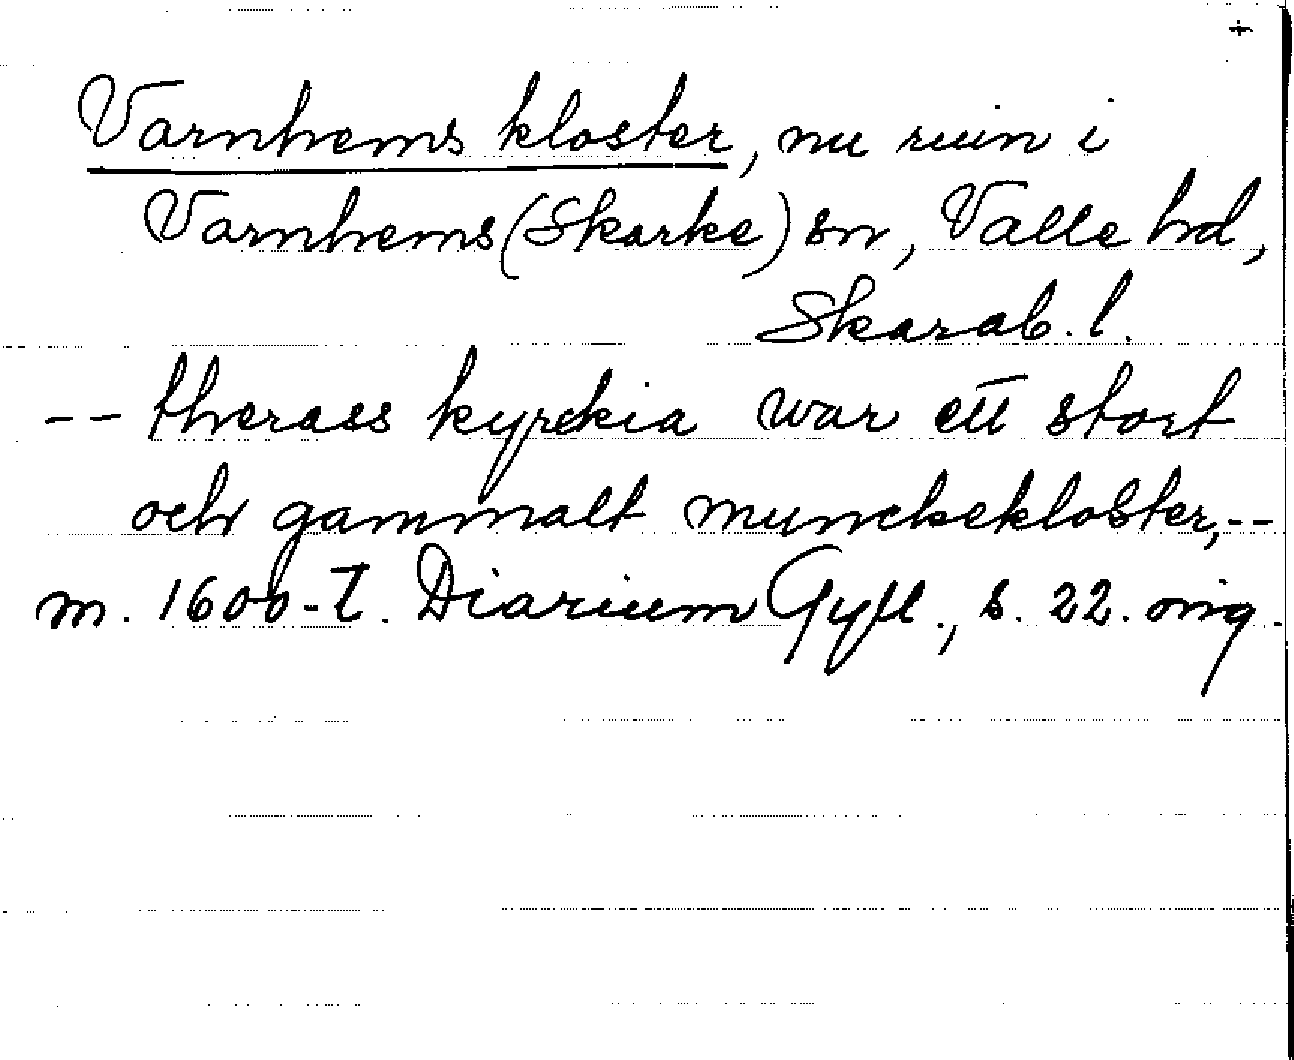 +
Varnhems kloster, nu ruin i
Varnhems (Skarke) sn, Valle hd,
Skarab. l.
-- therass kyrckia war ett stort
och gammalt munckekloster, --
m. 1600-t. Diarium Gyll., s. 22. omg.